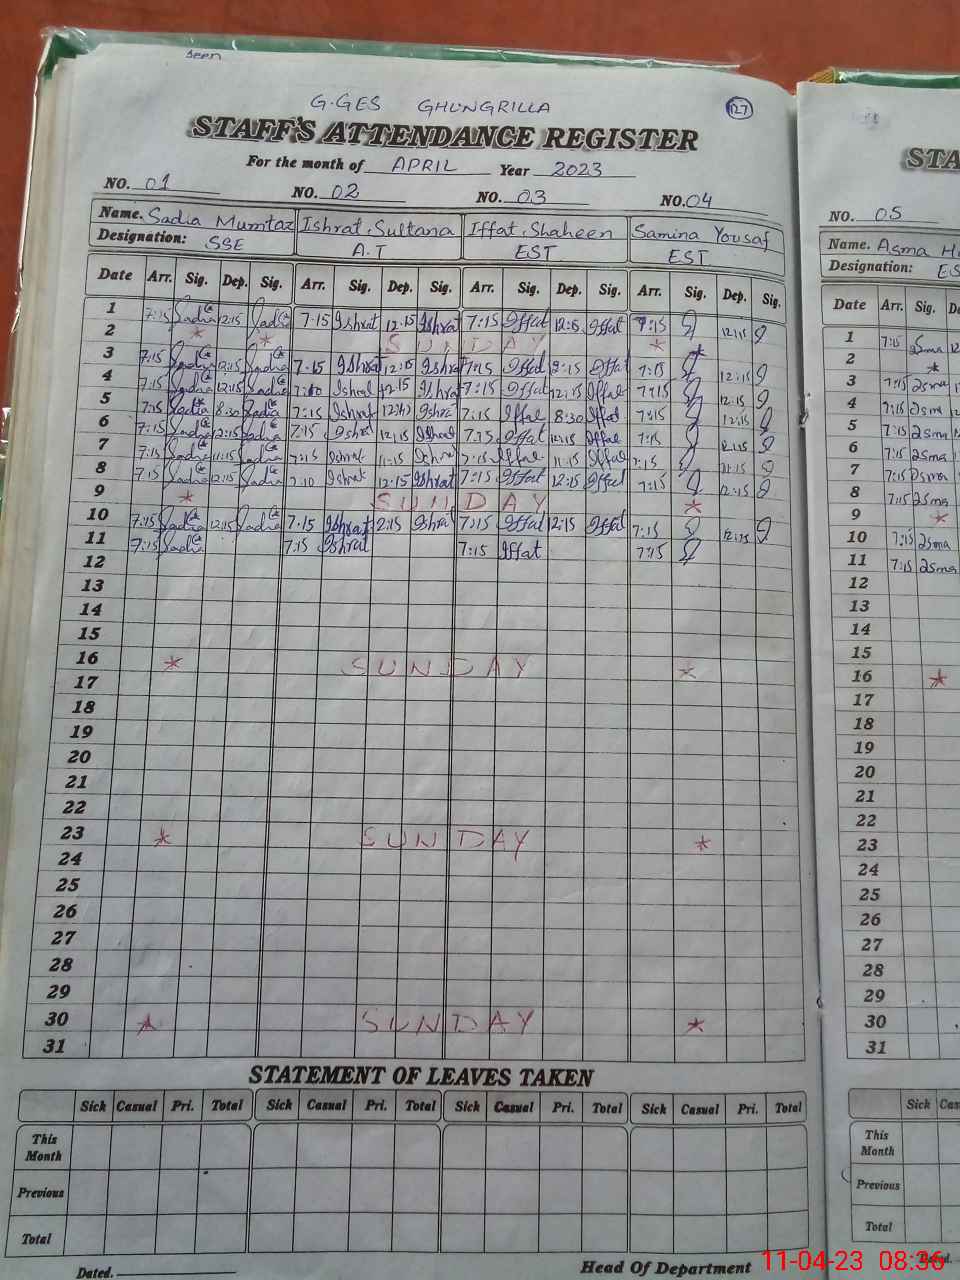 Seen
G.GES GHUNGRILLA 127
STAFF'S ATTENDANCE REGISTER
For the month of APRIL Year 2023
NO. 01 NO. 02 NO. 03 NO. 04
Name. Sadia Mumtaz Ishrat Sultana Iffat Shaheen Samina Yousaf
Designation: SSE A.T EST EST
Date Arr. Sig. Dep. Sig. Arr. Sig. Dep. Sig. Arr. Sig. Dep. Sig. Arr. Sig. Dep. Sig.
1 7:15 Sadia 12:15 Sadia 7:15 Ishrat 12:15 Ishrat 7:15 Iffat 12:15 Iffat 7:15 12:15
2 * * SUNDAY *
3 7:15 Sadia 12:15 Sadia 7:15 Ishrat 12:15 Ishrat 7:15 Iffat 12:15 Iffat 7:15 12:15
4 7:15 Sadia 12:15 Sadia 7:10 Ishrat 12:15 Ishrat 7:15 Iffat 12:15 Iffat 7:15 12:15
5 7:15 Sadia 8:30 Sadia 7:15 Ishrat Ishrat 7:15 Iffat 8:30 Iffat 7:15 12:15
6 7:15 Sadia 12:15 Sadia 7:15 Ishrat 12:15 Ishrat 7:15 Iffat 12:15 Iffat 7:15 12:15
7 7:15 Sadia 11:15 Sadia 7:15 Ishrat 11:15 Ishrat 7:15 Iffat 11:15 Iffat 7:15 11:15
8 7:15 Sadia 12:15 Sadia 7:10 Ishrat 12:15 Ishrat 7:15 Iffat 12:15 Iffat 7:15 12:15
9 * SUNDAY *
10 7:15 Sadia 12:15 Sadia 7:15 Ishrat 12:15 Ishrat 7:15 Iffat 12:15 Iffat 7:15 12:15
11 7:15 Sadia 7:15 Ishrat 7:15 Iffat 7:15
12
13
14
15
16 * SUNDAY *
17
18
19
20
21
22
23 * SUNDAY *
24
25
26
27
28
29
30 * SUNDAY *
31
STATEMENT OF LEAVES TAKEN
Sick Casual Pri. Total Sick Casual Pri. Total Sick Casual Pri. Total Sick Casual Pri. Total
This Month
Previous
Total
Dated. Head Of Department
STA
NO. 05
Name. Asma
Designation: ES
Date Arr. Sig.
1 7:15 12
2 *
3 7:15
4 7:15
5 7:15
6 7:15
7 7:15
8 7:15
9 *
10 7:15
11 7:15
12
13
14
15
16 *
17
18
19
20
21
22
23
24
25
26
27
28
29
30
31
Sick Cas
This Month
Previous
Total
Dated.
11-04-23 08:36